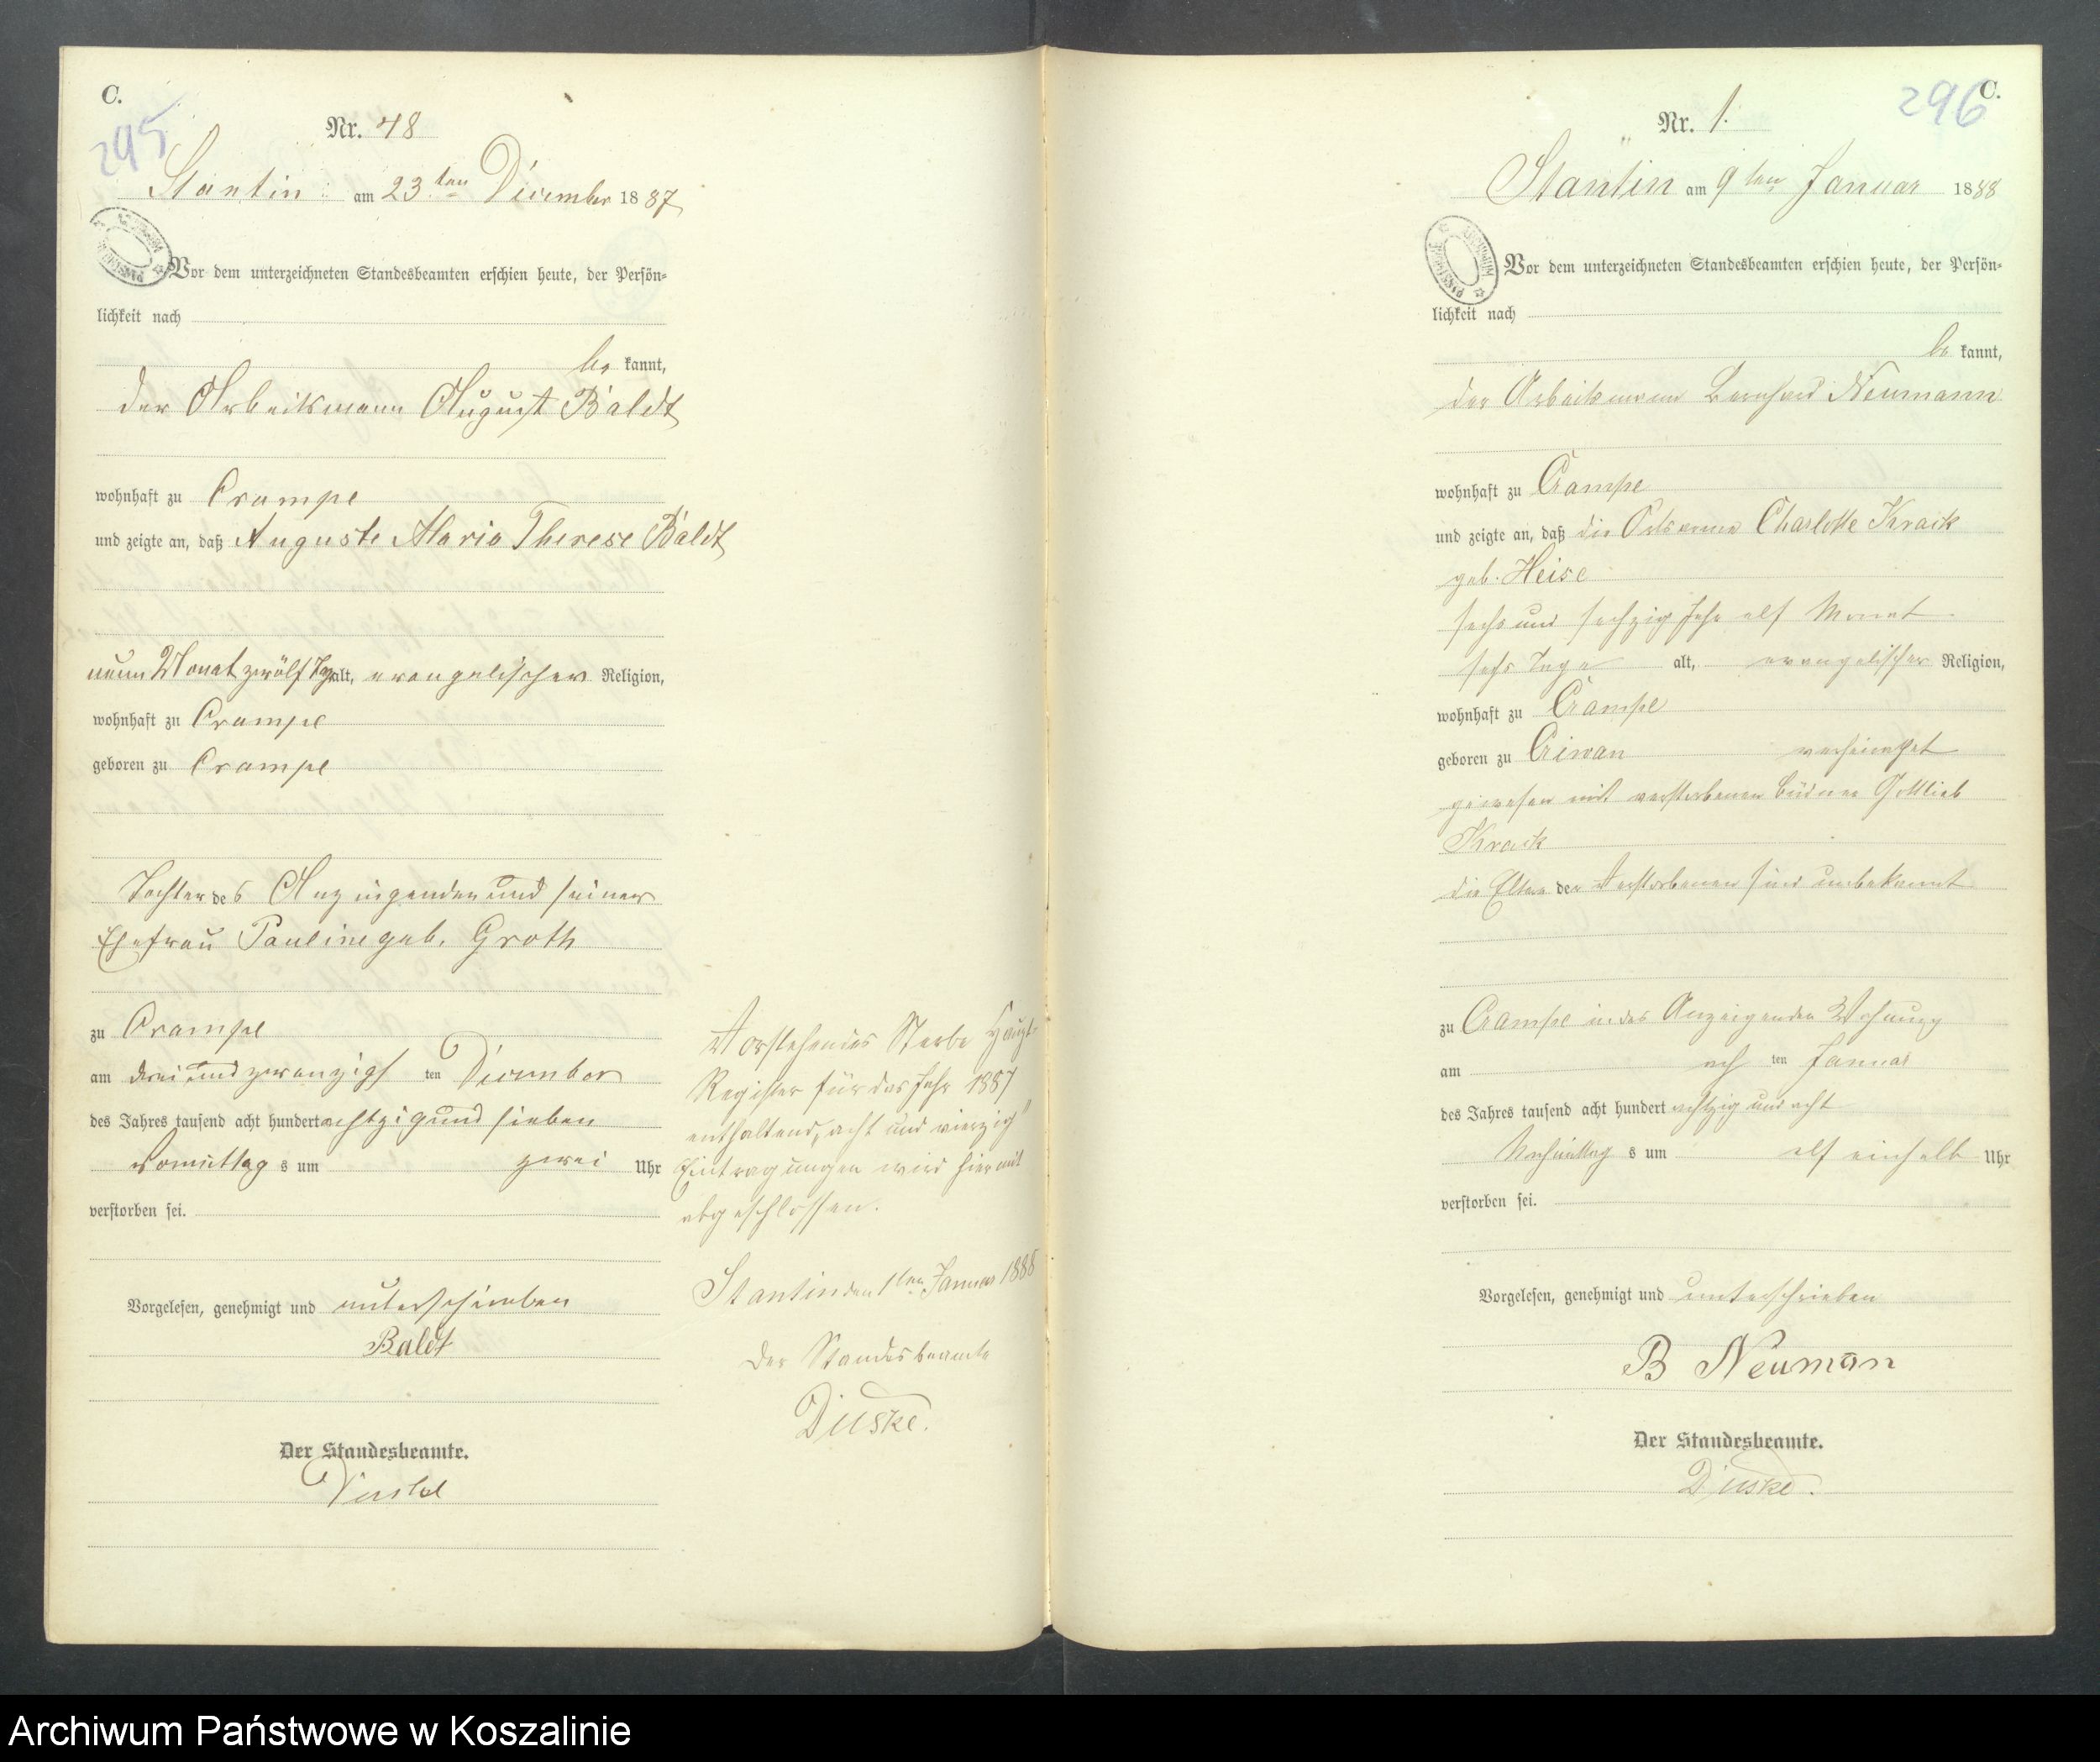 C.
295
Nr. 48
Stantin am 23ten December 1887
Vor dem unterzeichneten Standesbeamten erschien heute, der Persön-
lichkeit nach
be kannt,
der Arbeitsmann August Baldt
wohnhaft zu Crampe
und zeigte an, daß Auguste Maria Therese Baldt
neun Monat zwölf Tag alt, evangelischer Religion,
wohnhaft zu Crampe
geboren zu Crampe
Tochter des Anzeigenden und seiner
Ehefrau Pauline geb. Groth
zu Crampe
am drei und zwanzigs ten December
des Jahres tausend acht hundert achtzig und sieben
Vormittag s um zwei Uhr
verstorben sei.
Vorgelesen, genehmigt und unterschrieben
Baldt
Der Standesbeamte.
Diuske
Vorstehendes Sterbe Haupt-
Register für das Jahr 1887
enthaltend, acht und vierzig"
Eintragungen wird hiermit
abgeschlossen.
Stantin den 1ten Januar 1888
Der Standesbeamte
Diuske.
296
C.
Nr. 1.
Stantin am 9ten Januar 1888
Vor dem unterzeichneten Standesbeamten erschien heute, der Persön-
lichkeit nach
be kannt,
der Arbeitsmann Bernhard Neumann
wohnhaft zu Crampe
und zeigte an, daß die Ortsarme Charlotte Krack
geb. Heise
sechs und sechzig Jahr elf Monat
sechs Tage alt, evangelischer Religion,
wohnhaft zu Crampe
geboren zu Criwan verheirathet
gewesen mit verstorbenen Büdner Gottlieb
Krack
die Eltern der Verstorbenen sind unbekannt
zu Crampe in des Anzeigenden Wohnung
am ach ten Januar
des Jahres tausend acht hundert achtzig und acht
Nachmittag s um elf einhalb Uhr
verstorben sei.
Vorgelesen, genehmigt und unterschrieben
B Neuman
Der Standesbeamte.
Diuske.
Archiwum Państwowe w Koszalinie